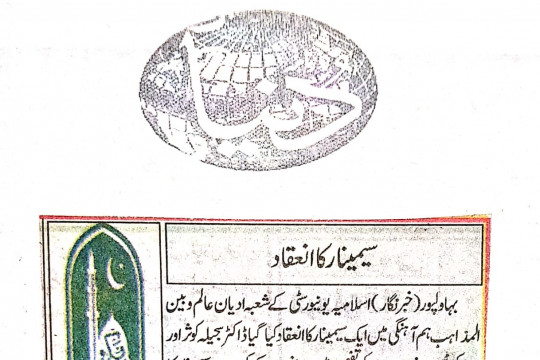 دنیا
سیمینار کا انعقاد
بہاولپور (خبر نگار) اسلامیہ یونیورسٹی کے شعبہ ادیان عالم و بین
المذاہب ہم آہنگی میں ایک سیمینار کا انعقاد کیا گیا ڈاکٹر سجیلہ کوثر اور